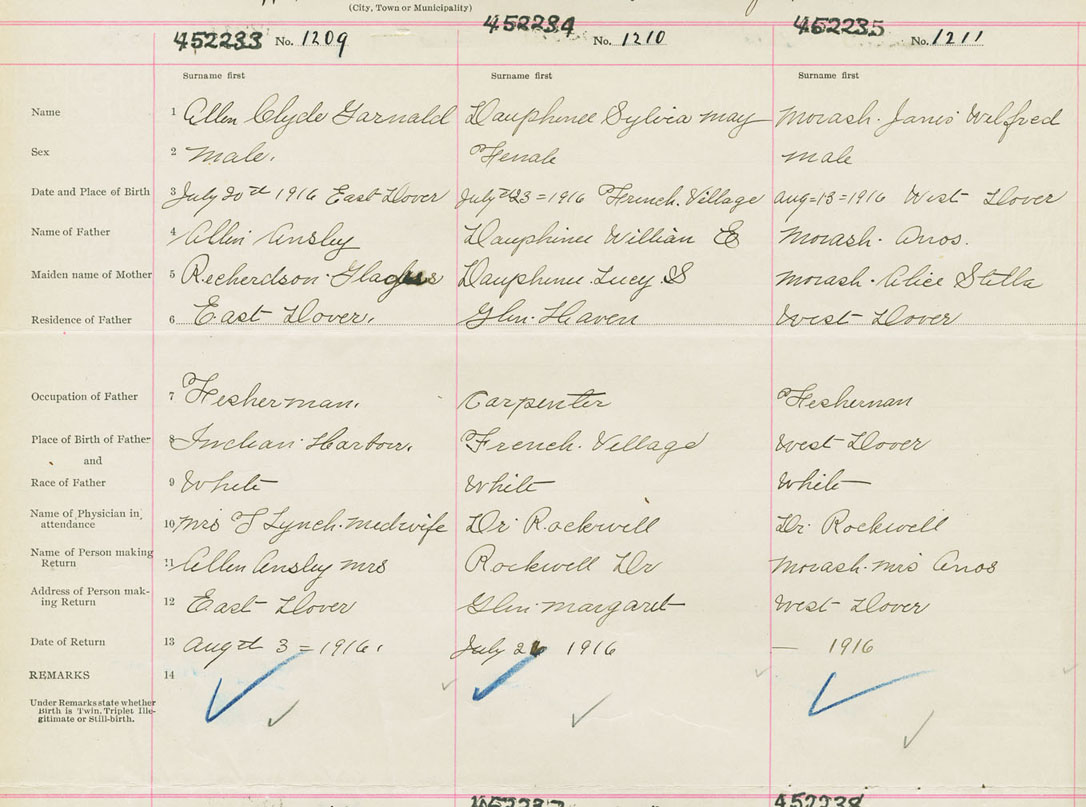 (City, Town or Municipality)
452233 No. 1209 452234 No. 1210 452235 No. 1211
Surname first Surname first Surname first
Name 1 Allen Clyde Garnald Dauphinee Sylvia may Morash. Janis Wilfred
Sex 2 Male. Female male
Date and Place of Birth 3 July 20th 1916 East Dover July 23=1916 French. Village Aug=13=1916 West Dover
Name of Father 4 Allen Ansley Dauphinee William E Morash. Amos.
Maiden name of Mother 5 Recherdson. Dauphinee. Lucy. S Morash. Alice Stella
Residence of Father 6 East Dover. Glen. Haven West Dover
Occupation of Father 7 Fesherman. Carpenter Fesherman
Place of Birth of Father 8 Indian Harbour. French. Village West Dover
and
Race of Father 9 White White White
Name of Physician in
attendance 10 Mrs F Lynch. Medwife Dr. Rockwell Dr Rockwell
Name of Person making
Return 11 Allen Ansley Mrs Rockwell Dr Morash. Mrs Amos
Address of Person mak-
ing Return 12 East Dover Glen. Margaret West Dover
Date of Return 13 Augst 3=1916. July 26 1916 — 1916
REMARKS 14
Under Remarks state whether
Birth is Twin. Triplet Ille-
gitimate or Still-birth.
452237 452238